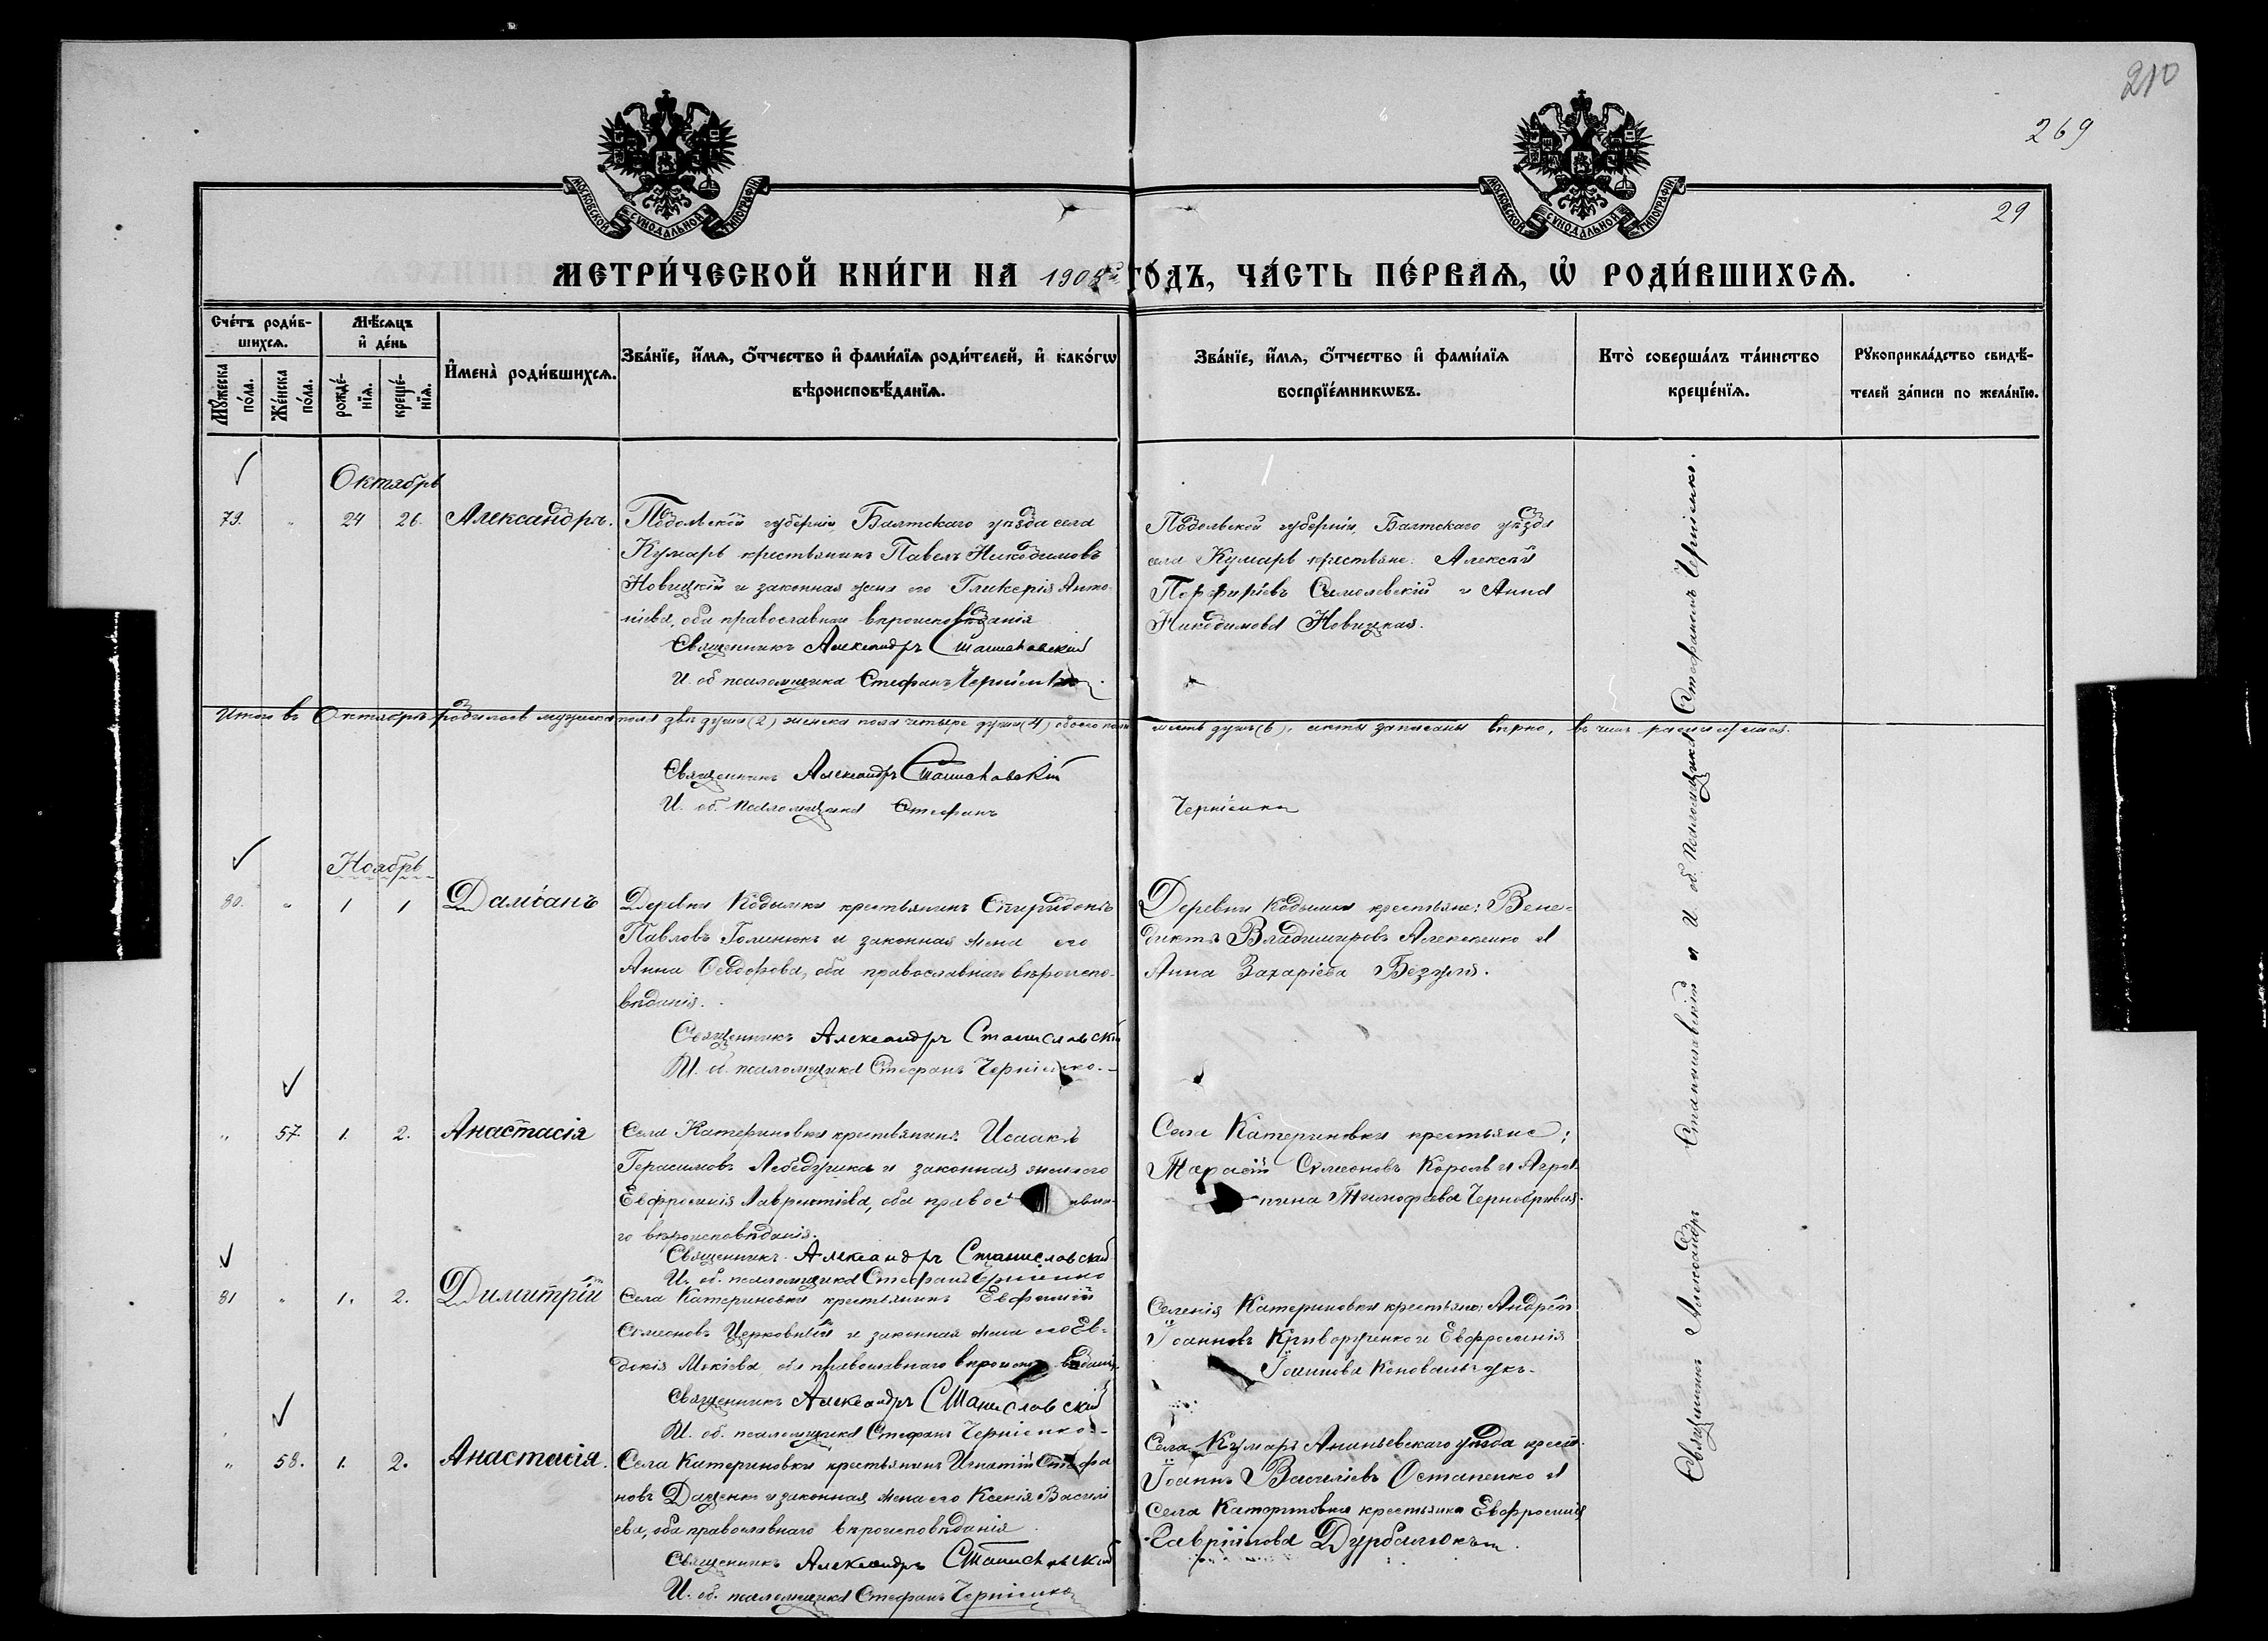 210
269
29
МОСКОВСКОЙ СѴНОДАЛЬНОЙ ТИПОГРАФІИ
МОСКОВСКОЙ СѴНОДАЛЬНОЙ ТИПОГРАФІИ
МЕТРИ́ЧЕСКОЙ КНИ́ГИ НА 1905й ГО́ДЪ, ЧА́СТЬ ПЕ́РВАѦ, Ѡ҆ РОДИ́ВШИХСѦ.
Сче́тъ роди́в-
шихсѧ.
Мꙋ́жеска по́ла.
Же́нска по́ла.
Мѣ́сѧцъ
и҆ де́нь
рожде́-нїѧ.
креще́-нїѧ.
И҆мена̀ роди́вшихсѧ.
Зва́нїе, и҆́мѧ, ѻ҆́тчество и҆ фами́лїѧ роди́телей, и҆ како́гѡ
вѣроисповѣ́данїѧ.
Зва́нїе, и҆́мѧ, ѻ҆́тчество и҆ фами́лїѧ
воспрїе́мникѡвъ.
Кто̀ соверша́лъ та́инство
креще́нїѧ.
Рꙋкоприкла́дство свидѣ́-
телей за́писи по жела́нїю.
Октябрь
79. " 24 26. Александръ.
Подольской губерніи, Балтскаго уѣзда села
Кумарь крестьянинъ Павелъ Никодимовъ
Новицкій и законная жена его Гликерія Анто-
ніева, оба православнаго вѣроисповѣданія
Священникъ Александръ Станиславскій
И. об. псаломщика Стефанъ Чернienко.
Подольской губерніи, Балтскаго уѣзда
села Кумарь крестьяне: Алексѣй
Порфиріевъ и Анна
Никодимова Новицкая.
Итого въ Октябрѣ родилось мужска пола двѣ души (2) женска пола четыре души (4) обоего пола шесть душъ (6), акты записаны вѣрно, въ чемъ росписуемся.
Священникъ Александръ Станиславскій
И. об. псаломщика Стефанъ Чернienко
Ноябрь
80. " 1 1 Даміанъ
Деревни Кодымки крестьянинъ Спиридонъ
Павловъ Голинюкъ и законная жена его
Анна Ѳеодорова, оба православнаго вѣроиспо-
вѣданія.
Священникъ Александръ Станиславскій
И. об. псаломщика Стефанъ Чернienко.
Деревни Кодымки крестьяне: Вене-
диктъ Владимировъ Алексеенко и
Анна Захаріева Безуля.
" 57 1. 2. Анастасія
Села Катериновки крестьянинъ Исаакъ
Герасимовъ Лебедзика и законная жена его
Евфросинія Лаврентіева, оба правос авна-
го вѣроисповѣданія.
Священникъ Александръ Станиславскій
И. об. псаломщика Стефанъ Чернienко
Села Катериновки крестьяне:
Тарасій Симеоновъ Король и Агрип-
пина Тимофеева Чернобривая.
81 " 1. 2. Димитрій
Села Катериновки крестьянинъ Евфимій
Симеоновъ Церковный и законная жена его Ев-
докія Мокіева, оба православнаго вѣроиспо вѣданія.
Священникъ Александръ Станиславскій
И. об. псаломщика Стефанъ Чернienко
Селенія Катериновки крестьяне: Андрей
Іоанновъ Криворученко и Евфросинія
Іоаннова Коновальчукъ.
" 58. 1. 2. Анастасія.
Села Катериновки крестьянинъ Игнатій Стефа
новъ Даценко и законная жена его Ксенія Василі
ева, оба православнаго вѣроисповѣданія
Священникъ Александръ Станиславскій
И. об. псаломщика Стефанъ Чернienко
Села Кумары Ананьевскаго уѣзда крест.
Іоаннъ Василіевъ Остапенко и
села Катериновки крестьянка Евфросинія
Гавріилова Дурбалюкъ.
Священникъ Александръ Станиславскій и И. об. псаломщика Стефанъ Чернienко.